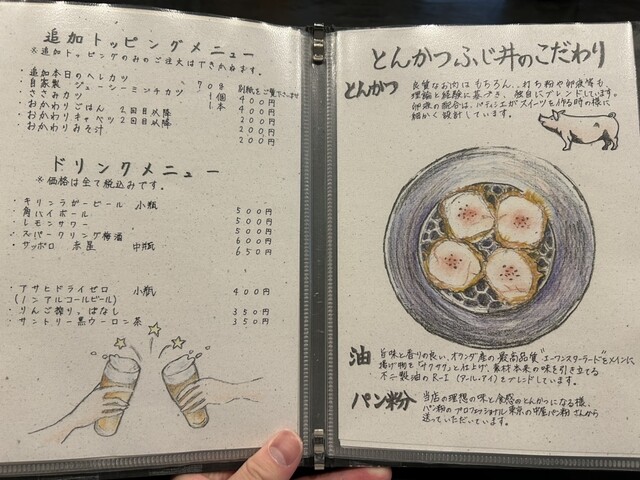 追加トッピングメニュー
※追加トッピングのみのご注文は下きかねます。
・追加本日のヘレカツ 別紙をご覧下さいませ
・自家製 ジューシーミンチカツ 70g 1個 400円
・ささみカツ 1本 400円
・おかわりごはん 2回目以降 200円
・おかわりキャベツ 2回目以降 200円
・おかわりみそ汁 200円
ドリンクメニュー
※価格は全て税込みです。
・キリンラガービール 小瓶 500円
・角ハイボール 500円
・レモンサワー 500円
・スパークリング梅酒 600円
・サッポロ 赤星 中瓶 650円
・アサヒドライゼロ 小瓶 400円
(ノンアルコールビール)
・りんご搾りっぱなし 350円
・サントリー黒ウーロン茶 350円
とんかつふじ井のこだわり
とんかつ
良質なお肉はもちろん、打ち粉や卵液等も、
理論と経験に基づき、独自にブレンドしています。
卵液の配合は、パティシエがスイーツを作る時の様に
細かく設計しています。
油
旨味と香りの良い、オランダ産の最高品質"エーワンスターラード"をメインに
揚げ物を「サクサク」と仕上げ、素材本来の味を引き立てる
不二製油のR-I(アール・アイ)をブレンドしています。
パン粉
当店の理想の味と食感のとんかつになる様、
パン粉のプロフェッショナル東京の中屋パン粉さんから
送っていただいています。